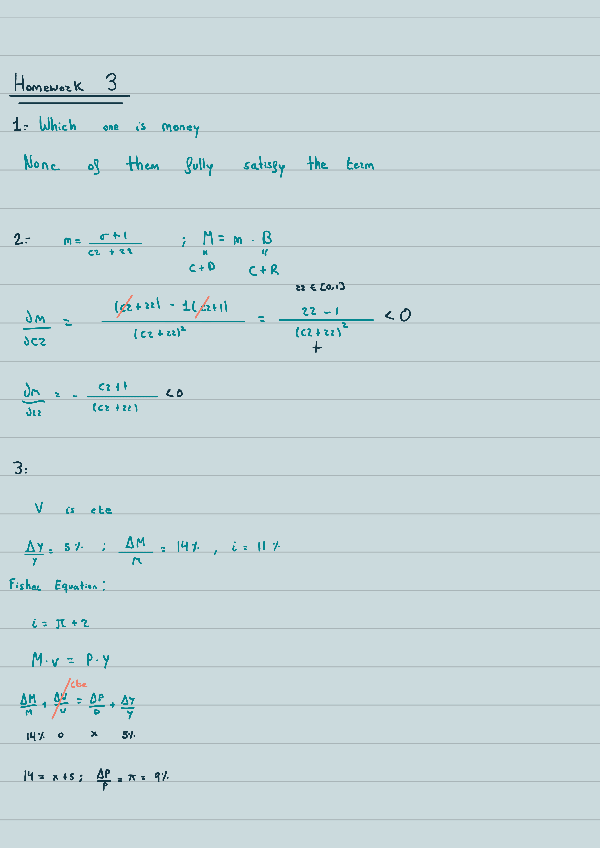 Homework 3
1.- Which one is money
None of them fully satisfy the term
2.- m = σ+1 / cz + zz ; M = m · B
C+D C+R
zz ∈ [0,1]
∂M / ∂cz = (cz + zz) - 1(cz+1) / (cz+zz)² = zz - 1 / (cz+zz)² < 0
+
∂m / ∂zz = - cz+1 / (cz+zz) < 0
3:
V is cte
ΔY/Y = 5% ; ΔM/M = 14% , i = 11%
Fisher Equation:
i = π + z
M·v = P·Y
ΔM/M + ΔV/V = ΔP/P + ΔY/Y
cte
14% 0 x 5%
14 = x+5 ; ΔP/P = π = 9%